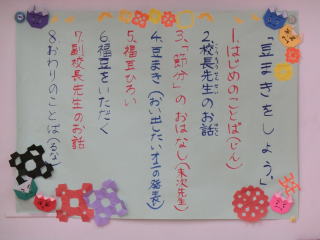 「豆まきをしよう」
1.はじめのことば(じん)
2.校長先生のお話
3.「節分」のおはなし(末次先生)
4.豆まき(おい出したいオニの発表)
5.福豆ひろい
6.福豆をいただく
7.副校長先生のお話
8.おわりのことば(るな)